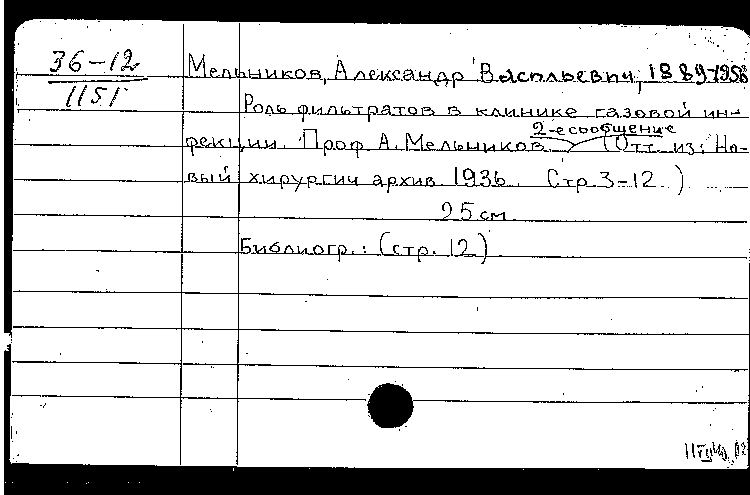 36-12
1151
Мельников, Александр Васильевич, 1889-1958
Роль фильтратов в клинике газовой ин-
фекции. Проф. А. Мельников 2-е сообщение (Отт. из: Но-
вый хирургич архив. 1936. Стр. 3-12.)
25 см.
Библиогр.: (стр. 12).